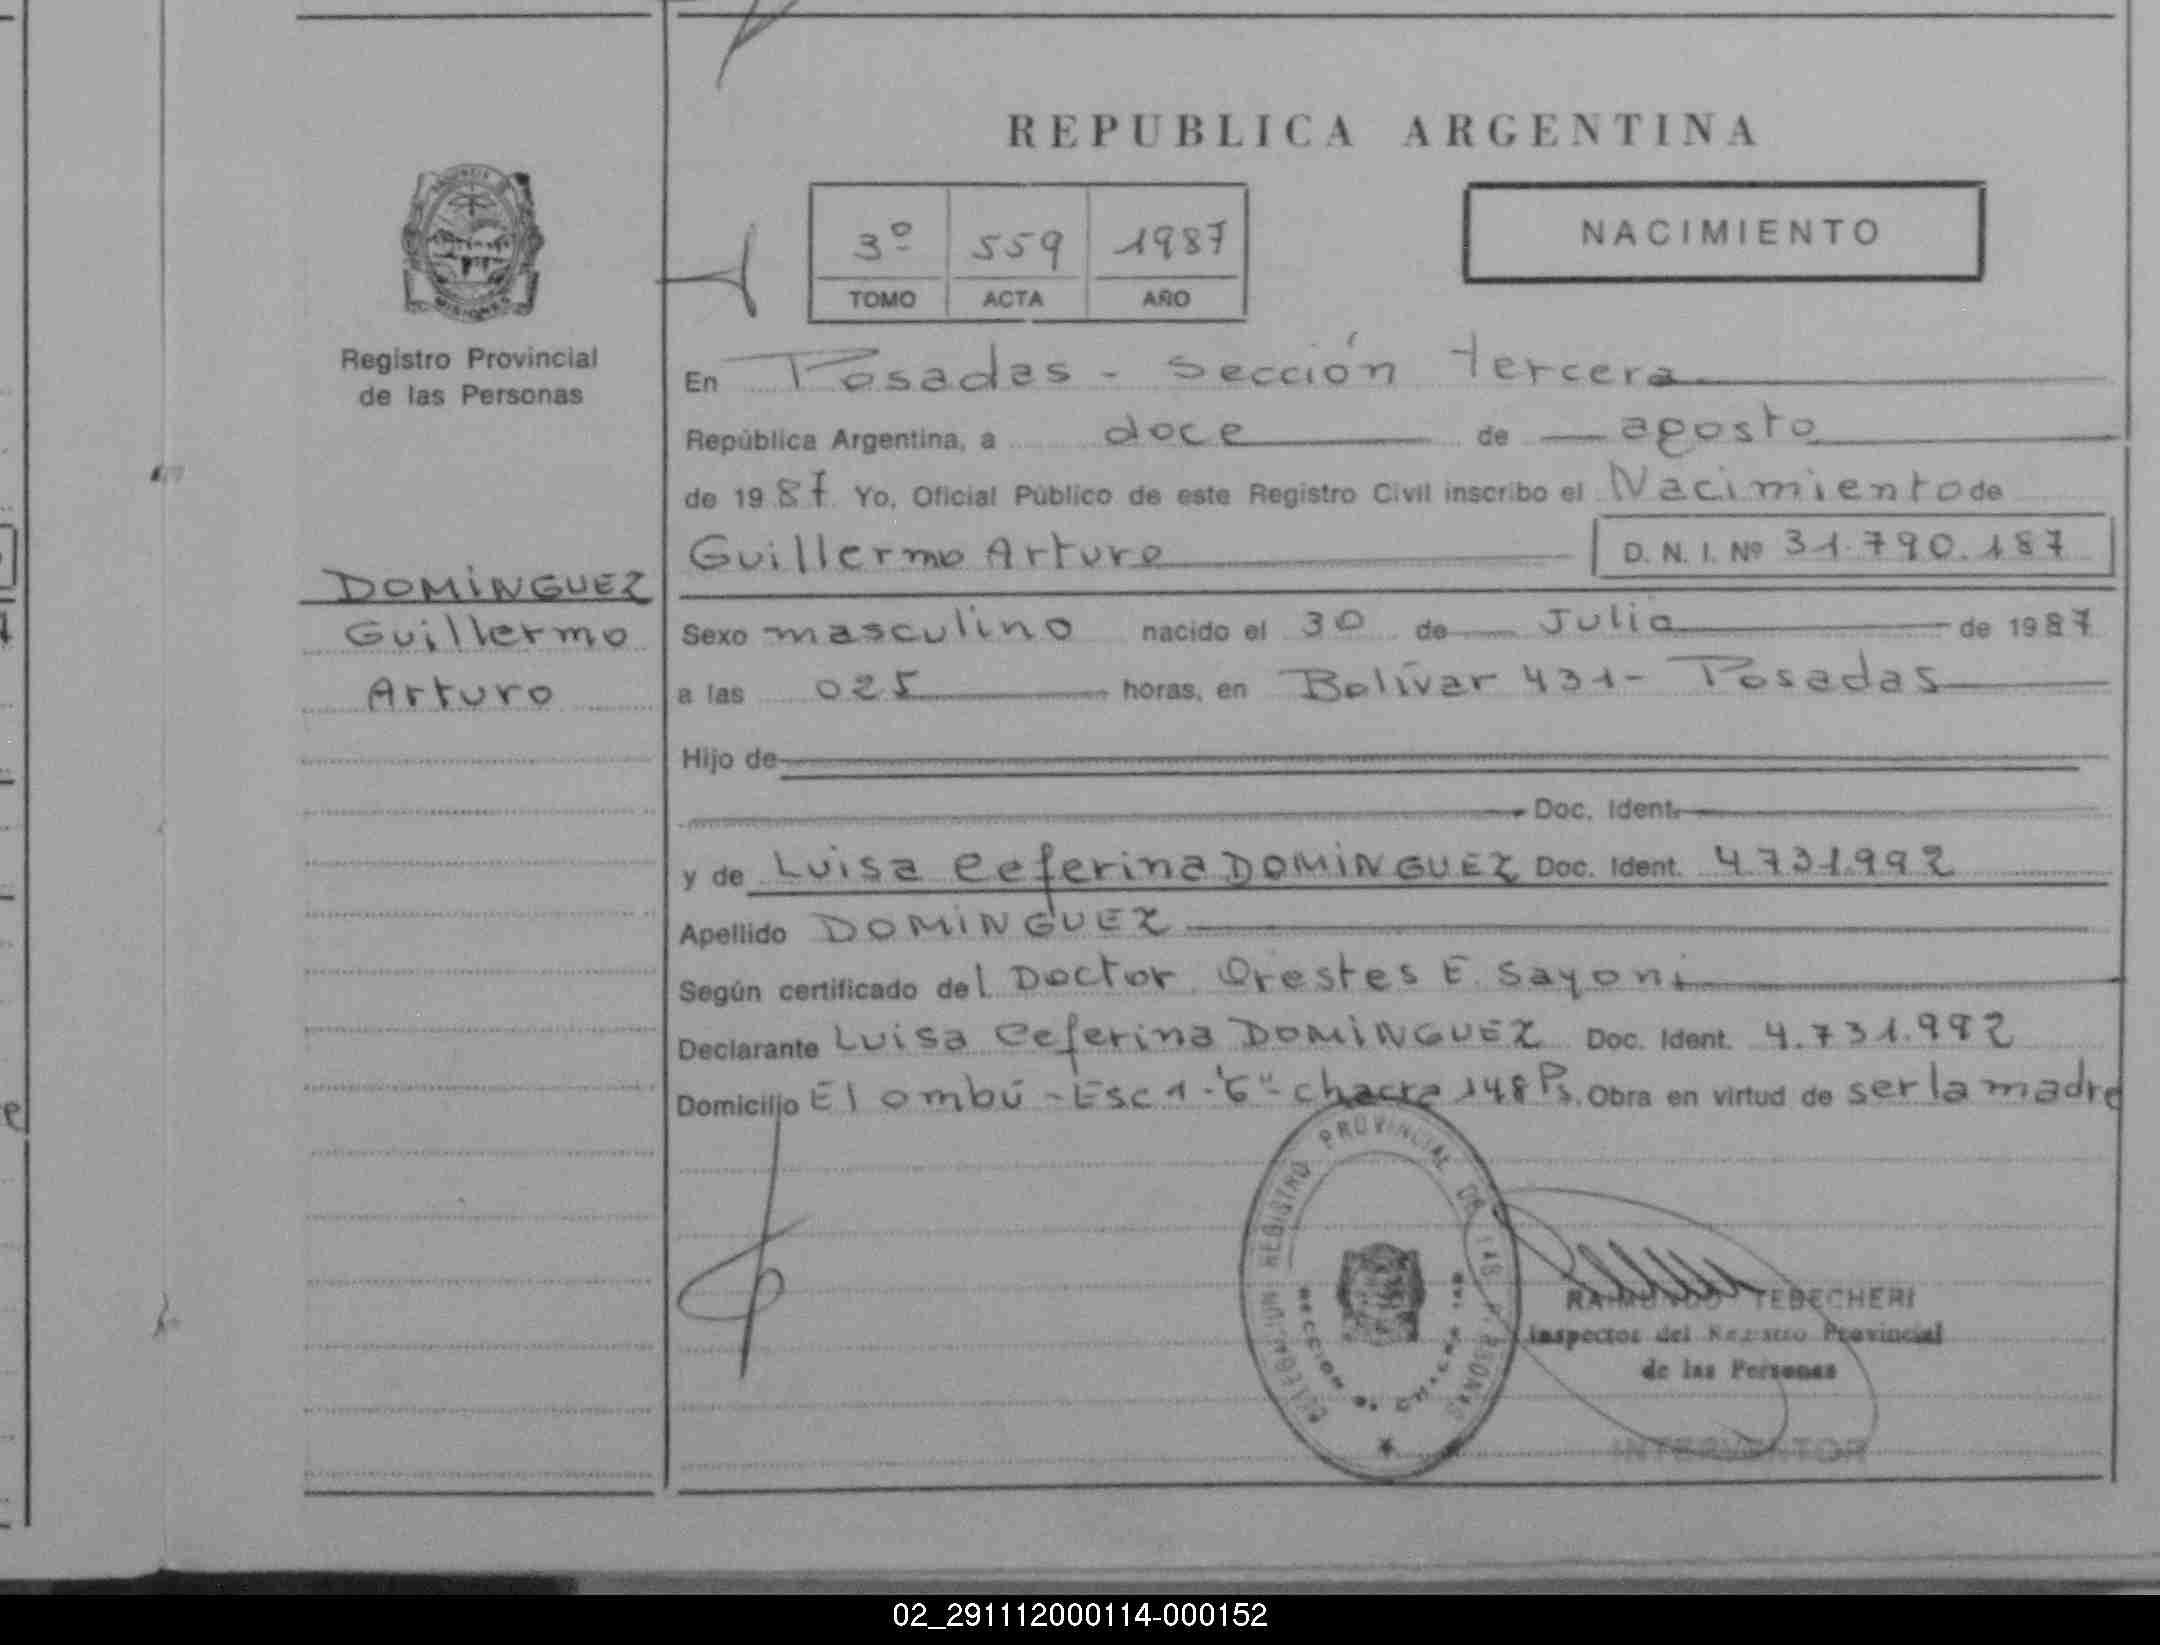 REPUBLICA ARGENTINA
3º 559 1987
TOMO ACTA AÑO
NACIMIENTO
Registro Provincial
de las Personas
DOMINGUEZ
Guillermo
Arturo
En Posadas - Sección tercera
República Argentina, a doce de agosto
de 1987 Yo, Oficial Público de este Registro Civil inscribo el Nacimiento de
Guillermo Arturo D. N. I. Nº 31.790.187
Sexo masculino nacido el 30 de Julio de 1987
a las 025 horas, en Bolívar 431 - Posadas
Hijo de
Doc. Ident.
y de Luisa Ceferina DOMINGUEZ Doc. Ident. 4.731.992
Apellido DOMINGUEZ
Según certificado del Doctor Orestes E. Sayoni
Declarante Luisa Ceferina DOMINGUEZ Doc. Ident. 4.731.992
Domicilio El ombú - Esc 1 - "6" - chacra 148 Ps. Obra en virtud de ser la madre
DELEGACION REGISTRO PROVINCIAL DE LAS PERSONAS
SECCION
RAIMUNDO TEBECHERI
Inspector del Registro Provincial
de las Personas
INTERVENTOR
02_291112000114-000152